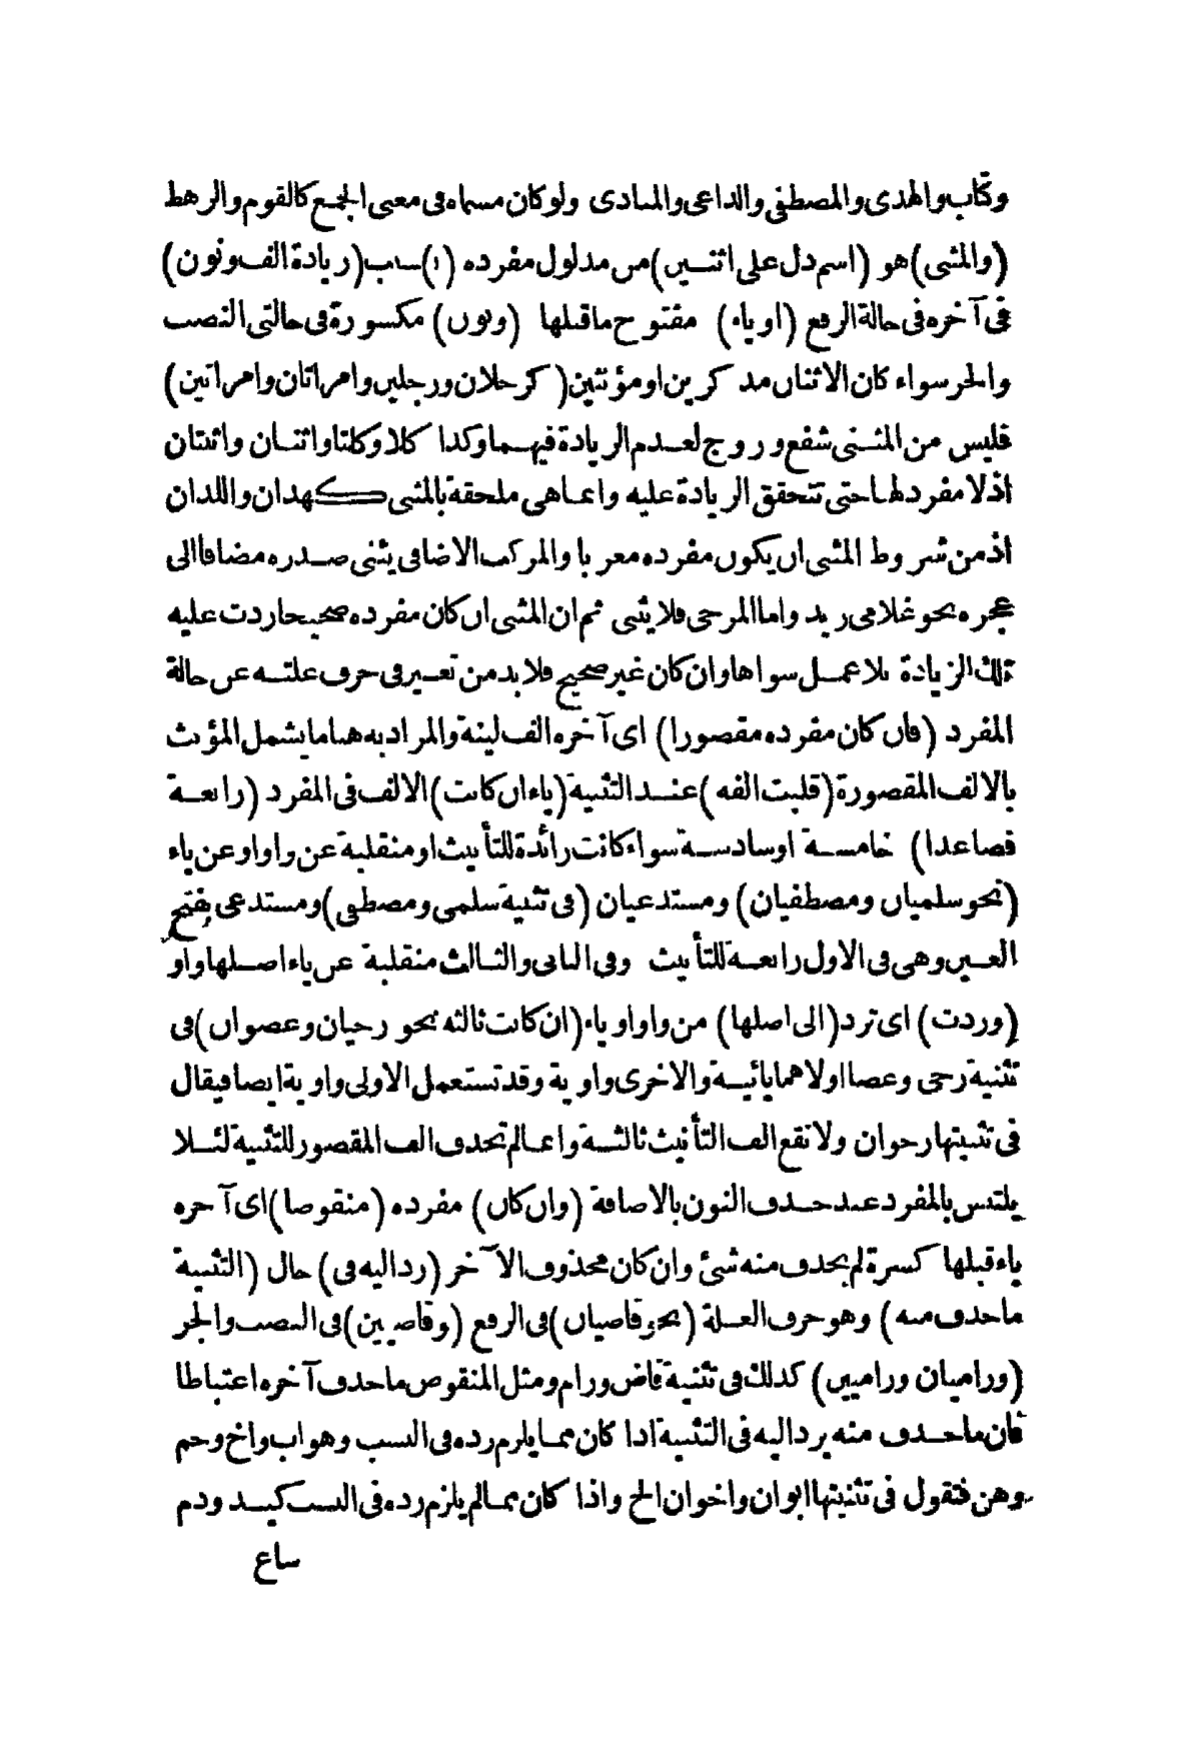 وكتاب والهدى والمصطفى والداعى والمنادى ولو كان مسماه فى معنى الجمع كالقوم والرهط
(والمثنى) هو (اسم دل على اثنين) من مدلول مفرده (١) سبب (زيادة الف ونون)
فى آخره فى حالة الرفع (او ياء) مفتوح ماقبلها (ونون) مكسورة فى حالتى النصب
والجر سواء كان الاثنان مذكرين او مؤنثين (كرجلان ورجلين وامرأتان وامرأتين)
فليس من المثنى شفع وزوج لعدم الزيادة فيهما وكذا كلا وكلتا واثنان واثنتان
اذ لا مفرد لها حتى تتحقق الزيادة عليه وانما هى ملحقة بالمثنى كهذان واللذان
اذ من شروط المثنى ان يكون مفرده معربا والمركب الاضافى يثنى صدره مضافا الى
عجزه نحو غلامى زيد واما المزجى فلا يثنى ثم ان المثنى ان كان مفرده صحيحا زدت عليه
تلك الزيادة بلا عمل سواها وان كان غير صحيح فلا بد من تغيير فى حرف علته عن حالة
المفرد (فان كان مفرده مقصورا) اى آخره الف لينة والمراد به هنا ما يشمل المؤنث
بالالف المقصورة (قلبت الفه) عند التثنية (ياء ان كانت) الالف فى المفرد (رابعة
فصاعدا) خامسة او سادسة سواء كانت زائدة للتأنيث او منقلبة عن واو او عن ياء
(نحو سلميان ومصطفيان) ومستدعيان (فى تثنية سلمى ومصطفى) ومستدعى بفتح
العين وهى فى الاول رابعة للتأنيث وفى الثانى والثالث منقلبة عن ياء اصلها واو
(وردت) اى ترد (الى اصلها) من واو او ياء (ان كانت ثالثة نحو رحيان وعصوان) فى
تثنية رحى وعصا اولاهما يائية والاخرى واوية وقد تستعمل الاولى واوية ايضا فيقال
فى تثنيتها رحوان ولا تقع الف التأنيث ثالثة وانما لم تحذف الف المقصور للتثنية لئلا
يلتبس بالمفرد عند حذف النون بالاضافة (وان كان) مفرده (منقوصا) اى آخره
ياء قبلها كسرة لم يحذف منه شئ وان كان محذوف الآخر (رد اليه فى) حال (التثنية
ما حذف منه) وهو حرف العلة (نحو قاضيان) فى الرفع (وقاضيين) فى النصب والجر
(وراميان وراميين) كذلك فى تثنية قاض ورام ومثل المنقوص ما حذف آخره اعتباطا
فان ما حذف منه يرد اليه فى التثنية اذا كان مما يلزم رده فى النسب وهو اب واخ وحم
وهن فتقول فى تثنيتها ابوان واخوان الخ واذا كان مما لم يلزم رده فى النسب كيد ودم
ساع